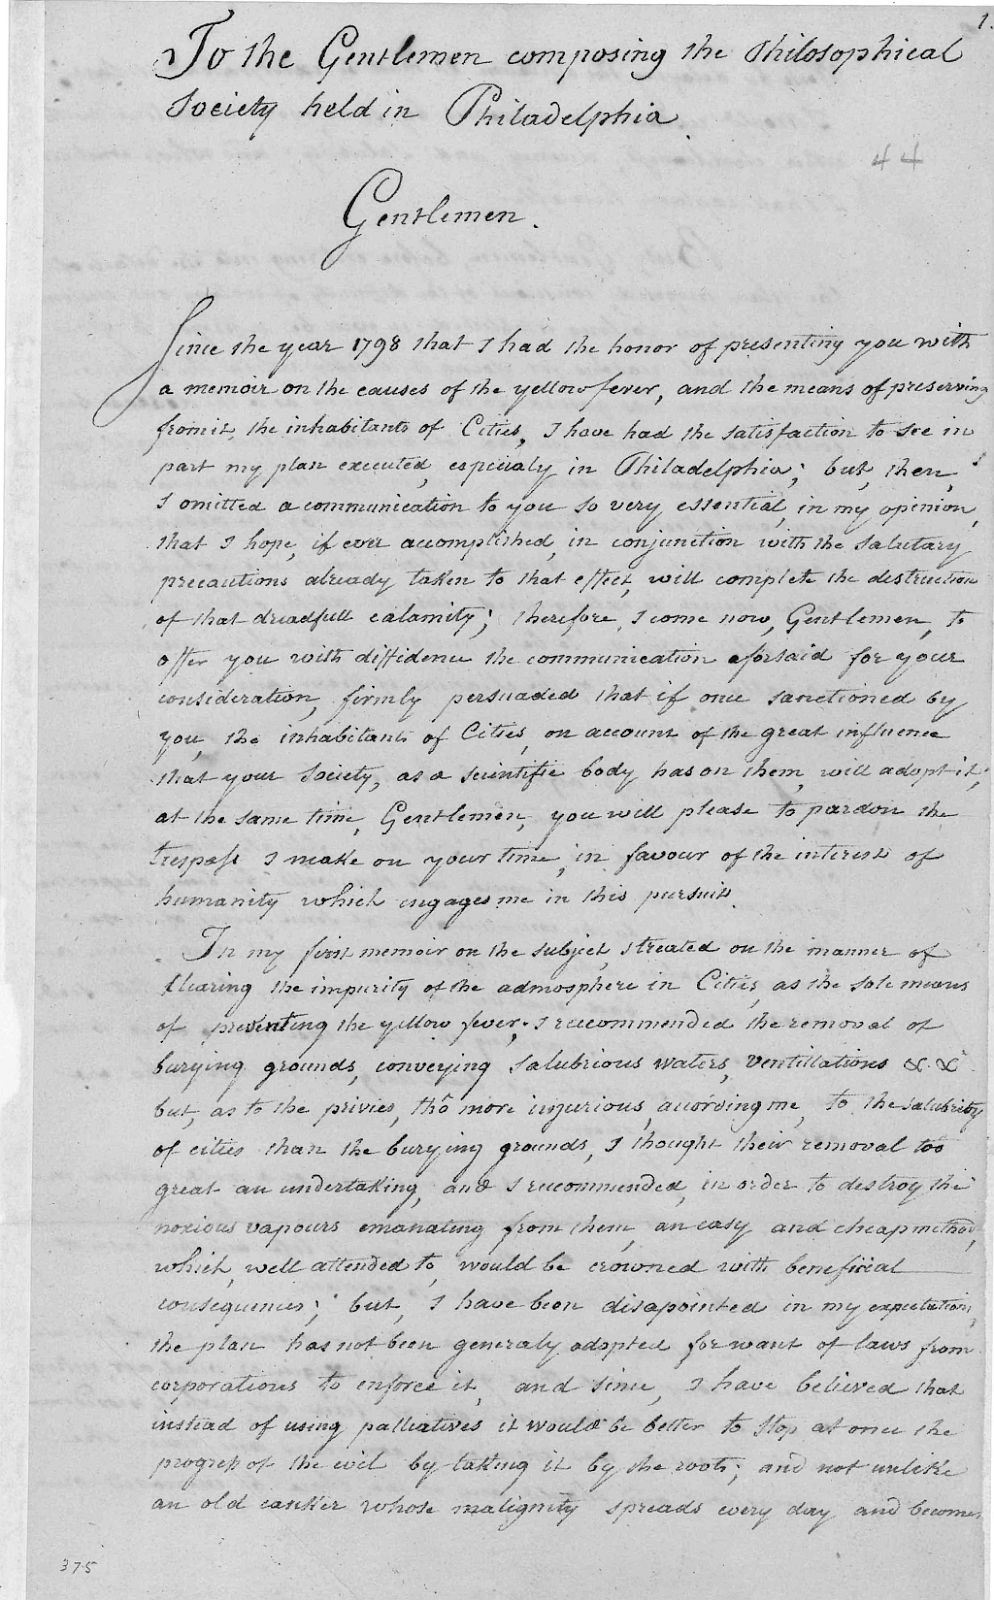 1.
To the Gentlemen composing the Philosophical
Society held in Philadelphia.
44
Gentlemen.
Since the year 1798 that I had the honor of presenting you with
a memoir on the causes of the yellow fever, and the means of preserving
from it, the inhabitants of Cities, I have had the satisfaction to see in
part my plan executed, especialy in Philadelphia; but, then,
I omitted a communication to you so very essential, in my opinion,
that I hope, if ever accomplished, in conjunction with the salutary
precautions already taken to that effect, will complete the destruction
of that dreadfull calamity; therefore, I come now, Gentlemen, to
offer you with diffidence the communication aforsaid for your
consideration, firmly persuaded that if once sanctioned by
you, the inhabitants of Cities, on account of the great influence
that your Society, as a scientific body has on them, will adopt it;
at the same time, Gentlemen, you will please to pardon the
trespass I make on your time, in favour of the interest of
humanity which engages me in this pursuit.
In my first memoir on the subject, I treated on the manner of
clearing the impurity of the admosphere in Cities, as the sole means
of preventing the yellow fever; I recommended the removal of
burying grounds, conveying salubrious waters, ventillations &. &.
but, as to the privies, tho more injurious, acording me, to the salubrity
of cities than the burying grounds, I thought their removal too
great an undertaking, and I recommended, in order to destroy the
noxious vapours emanating from them, an easy and cheap method,
which, well attended to, would be crowned with benefical
consequences; but, I have been disapointed in my expectation,
the plan has not been generaly adopted for want of laws from
corporations to enforce it, and since, I have believed that
instead of using palliatives it would be better to stop at once the
progress of the evil by taking it by the roots; and not unlike
an old canker whose malignity spreads every day and becomes
375